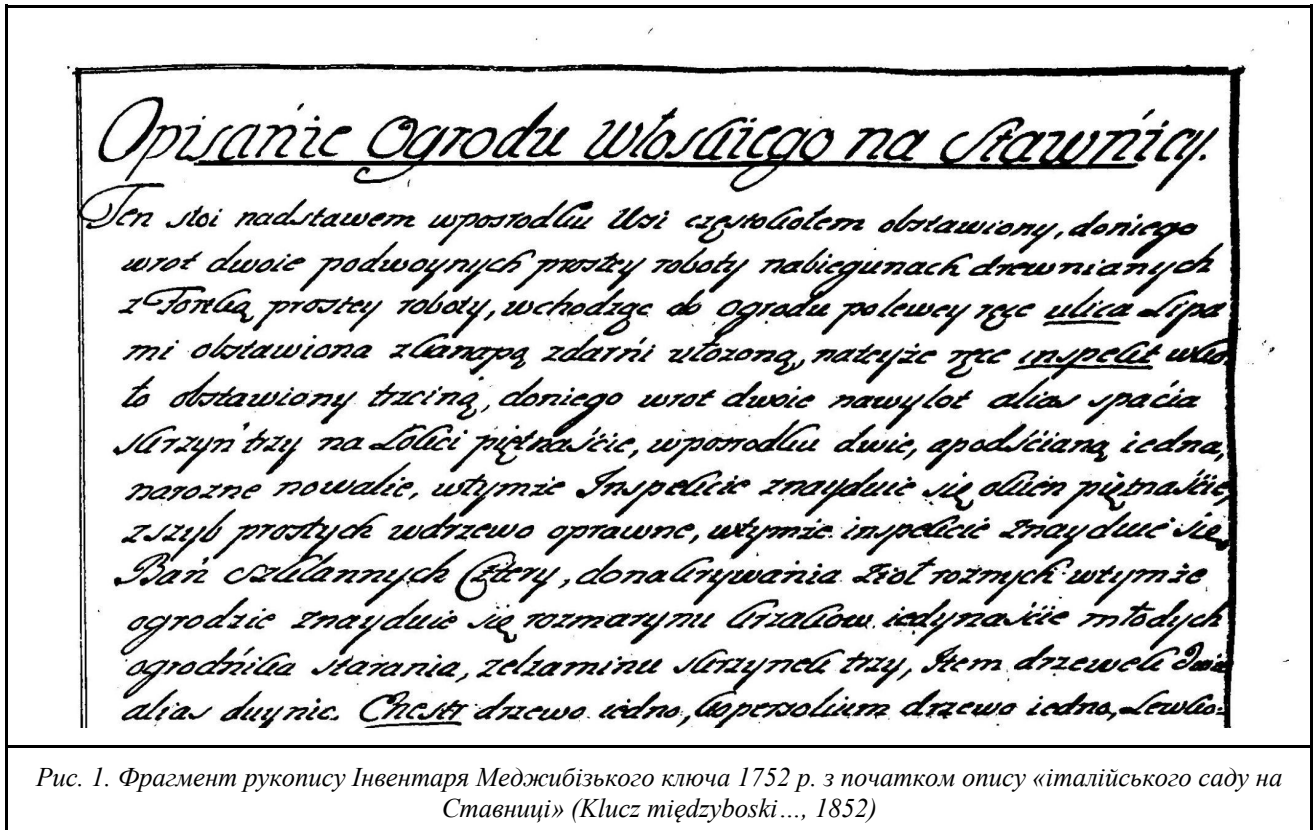 Opisańie Ogrodu włoskiego na Stawńicy.
Ten stoi nadstawem wposrodku Wsi częstokołem obstawiony, doniego
wrot dwoie podwoynych prostey roboty nabiegunach drewnianych
z Fortką prostey roboty, wchodząc do Ogrodu polewey ręce ulica Lipa
mi obstawiona zkanapą zdarńi ułozoną, nateyże ręce inspekt wko
ło obstawiony trzciną, doniego wrot dwoie nawylot alias spacia
skrzyń trzy na Łokci piętnaście, wposrodku dwie, apodścianą iedna,
narozne nowalie, wtymże Inspekcie znayduie się okien piętnaście,
zszyb prostych wdrzewo oprawne, wtymże inspekcie znayduie się
Bań szklannych Cztery, donakrywańia zioł roznych wtymże
ogrodzie znayduie się rozmarynu krzakow iedynaście młodych
ogrodńika starania, zelzaminu skrzynek trzy, Item drzewek
alias duynic. Chestr drzewo iedno, kopersolium drzewo iedno, Lewko=
Рис. 1. Фрагмент рукопису Інвентаря Меджибізького ключа 1752 р. з початком опису «італійського саду на
Ставниці» (Klucz międzyboski…, 1852)